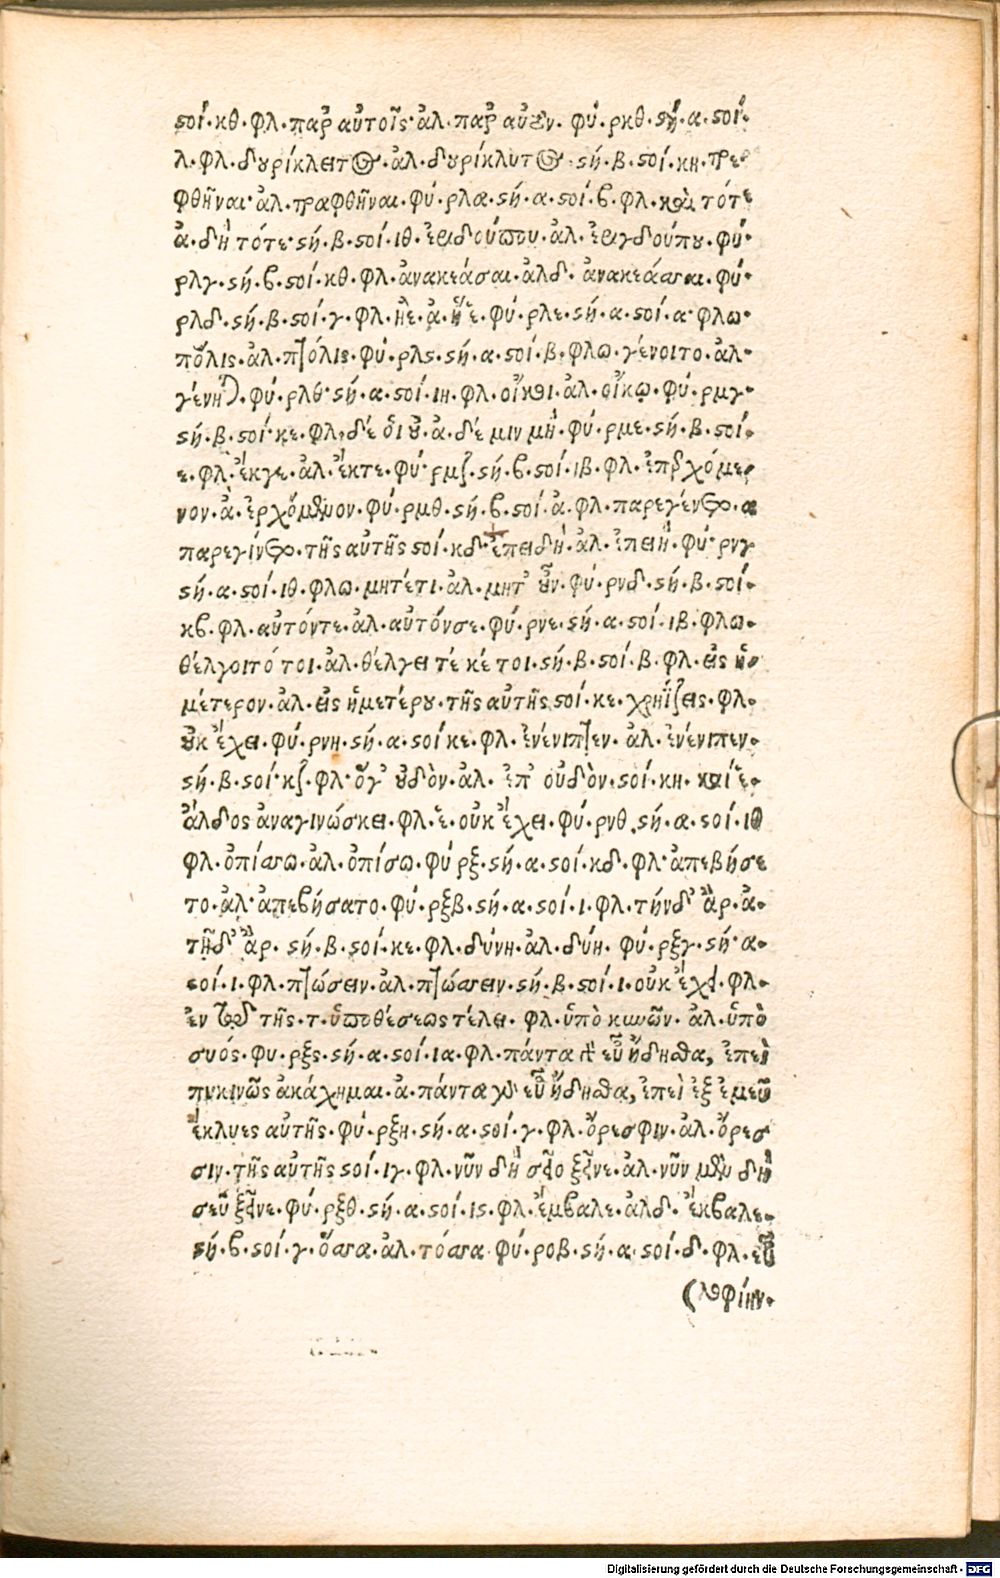 ϛοί· κθ· φλ· παρ αὐτοῖς· ἀλ· παρ αὐτῶν· φύ· ρκθ· ϛή· α· ϛοί·
λ· φλ· δουρίκλειτος· ἀλ· δουρίκλυτος· ϛή· β· ϛοί· κη· τρε·
φθῆναι· ἀλ· τραφθῆναι· φύ· ρλα· ϛή· α· ϛοί· β· φλ· καὶ τότε
ἀ· δὴ τότε· ϛή· β· ϛοί· ιθ· ἐριδούπου· ἀλ· ἐριγδούπου· φύ·
ρλγ· ϛή· β· ϛοί· κθ· φλ· ἀνακεάσαι· ἀλδ· ἀνακεάσσαι· φύ·
ρλδ· ϛή· β· ϛοί· γ· φλ· ἠὲ· ἀ· ἤε· φύ· ρλε· ϛή· α· ϛοί· α· φλω·
πόλις· ἀλ· πτόλις· φύ· ρλς· ϛή· α· ϛοί· β· φλω· γένοιτο· ἀλ·
γένηται· φύ· ρλθ· ϛή· α· ϛοί· ιη· φλ· οἴκοι· ἀλ· οἴκῳ· φύ· ρμγ·
ϛή· β· ϛοί· κε· φλ· δέ οἱ οὐ· ἀ· δέ μιν μὴ· φύ· ρμε· ϛή· β· ϛοί·
ε· φλ· ἔκγε· ἀλ· ἔκτε· φύ· ρμζ· ϛή· β· ϛοί· ιβ· φλ· ἐπερχόμε·
νον· ἀ· ἐρχόμενον· φύ· ρμθ· ϛή· β· ϛοί· ἀ· φλ· παρεγένοντο· α
παρεγίνοντο· τῆς αὐτῆς ϛοί· κδ· ἐπειδὴ· ἀλ· ἐπειὴ· φύ· ρνγ
ϛή· α· ϛοί· ιθ· φλω· μητέτι· ἀλ· μητ' οὖν· φύ· ρνδ· ϛή· β· ϛοί·
κβ· φλ· αὐτόντε· ἀλ· αὐτόνσε· φύ· ρνε· ϛή· α· ϛοί· ιβ· φλω·
θέλγοιτό τοι· ἀλ· θέλγει τέ κέ τοι· ϛή· β· ϛοί· β· φλ· εἰς ἡ·
μέτερον· ἀλ· εἰς ἡμετέρου· τῆς αὐτῆς ϛοί· κε· χρηΐζεις· φλ·
οὐκ ἔχει· φύ· ρνη· ϛή· α· ϛοί κε· φλ· ἐνένιπτεν· ἀλ· ἐνένιπεν·
ϛή· β· ϛοί· κζ· φλ· ὅγ' οὐδὸν· ἀλ· ἐπ' οὐδὸν· ϛοί· κη· καί ἑ·
ἄλδος ἀναγινώσκει· φλ· ἑ· οὐκ ἔχει· φύ· ρνθ· ϛή· α· ϛοί· ιθ
φλ· ὀπίσσω· ἀλ· ὀπίσω· φύ ρξ· ϛή· α· ϛοί· κδ· φλ· ἀπεβήσε
το· ἀλ· ἀπεβήσατο· φύ· ρξβ· ϛή· α· ϛοί· ι· φλ· τήνδ' ἂρ· ἀ·
τῇδ' ἂρ· ϛή· β· ϛοί· κε· φλ· δύνη· ἀλ· δύη· φύ· ρξγ· ϛή· α·
ϛοί· ι· φλ· πτώσειν· ἀλ· πτώσσειν· ϛή· β· ϛοί· ι· οὐκ ἔχει· φλ·
ἐν τῷ τῆς· τ· ὑποθέσεως τέλει· φλ· ὑπὸ κυνῶν· ἀλ· ὑπὸ
συός· φυ· ρξς· ϛή· α· ϛοί· ια· φλ· πάντα εὖ ᾔδησθα, ἐπεὶ
πυκινῶς ἀκάχημαι· ἀ· πάντα γὰρ εὖ ᾔδησθα, ἐπεὶ ἐξ ἐμεῦ
ἔκλυες αὐτῆς· φύ· ρξη· ϛή· α· ϛοί· γ· φλ· ὄρεσφιν· ἀλ· ὄρεσ
σιν· τῆς αὐτῆς ϛοί· ιγ· φλ· νῦν δὴ σεῖο ξεῖνε· ἀλ· νῦν μὲν δὴ
σεῦ ξεῖνε· φύ· ρξθ· ϛή· α· ϛοί· ις· φλ· ἔμβαλε· ἀλδ· ἔκβαλε·
ϛή· β· ϛοί· γ· ὅσσα· ἀλ· τόσσα· φύ· ροβ· ϛή· α· ϛοί· δ· φλ· εὐ
Digitalisierung gefördert durch die Deutsche Forschungsgemeinschaft - DFG